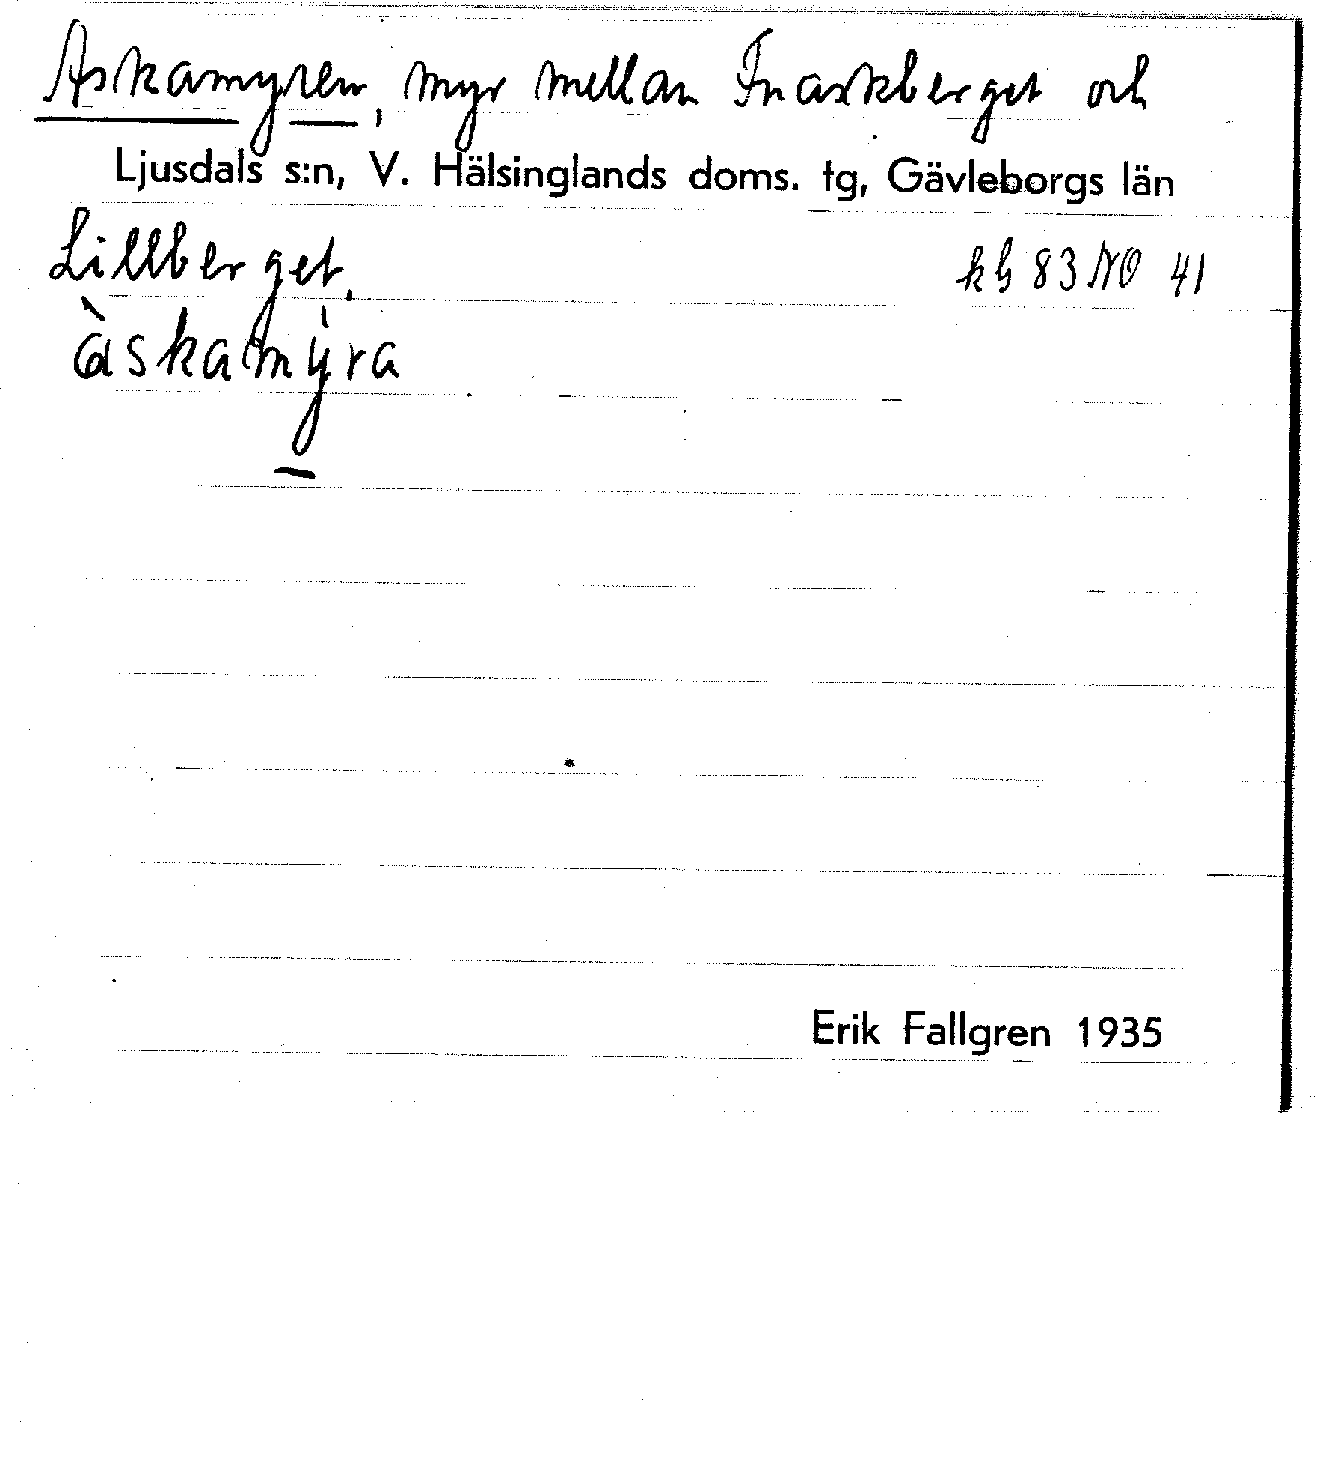 Askamyren, myr mellan Snaskberget och
Ljusdals s:n, V. Hälsinglands doms. tg, Gävleborgs län
Lillberget.
kb 83 NO 41
àskamýra
Erik Fallgren 1935